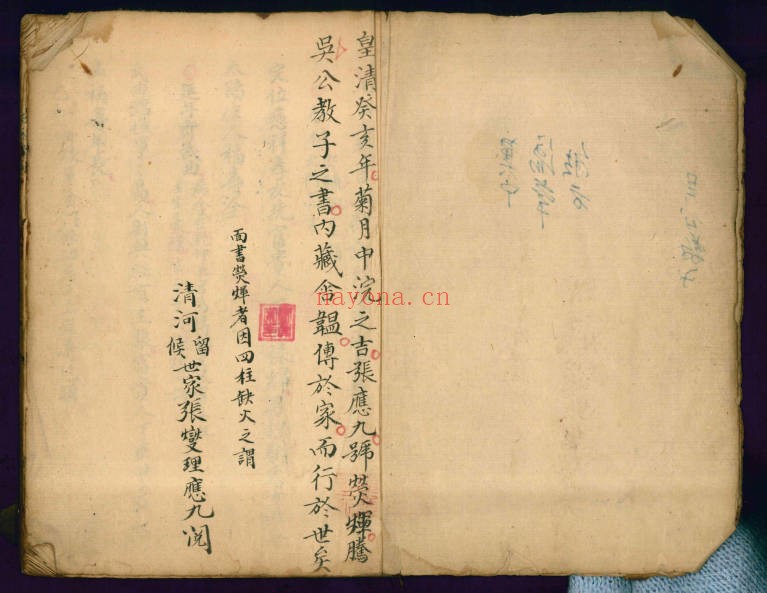 皇清癸亥年菊月中浣之吉張應九號熒煇騰
吳公教子之書內藏龠韞傳於家而行於世矣
面書熒煇者因四柱缺火之謂
清河留候世家張燮理應九閱
nayona.cn